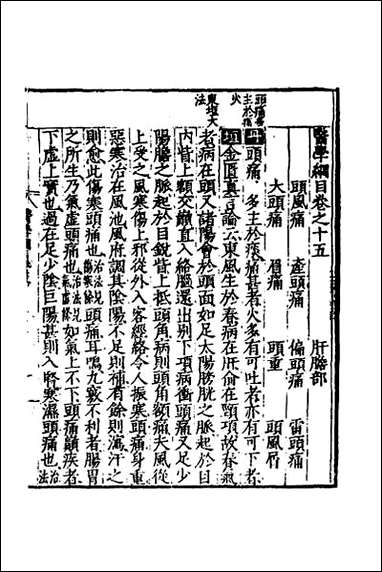 醫學綱目卷之十五
肝膽部
頭風痛 㾫頭痛 偏頭痛 雷頭痛
大頭痛 眉痛 頭重 頭風屑
頭痛多
主於痰
火
丹頭痛多主於痰痛甚者火多有可吐者亦有可下者
東垣大
法
垣金匱真言論云東風生於春病在肝俞在頸項故春氣
者病在頭又諸陽會於頭面如足太陽膀胱之脈起於目
內眥上額交巔直入絡腦還出別下項病衝頭痛又足少
陽膽之脈起於目銳眥上抵頭角病則頭角額痛夫風從
上受之風寒傷上邪從外入客經絡令人振寒頭痛身重
惡寒治在風池風府調其陰陽不足則補有餘則瀉汗之
則愈此傷寒頭痛也治法見傷寒條頭痛耳鳴九竅不利者腸胃
之所生乃氣虛頭痛也治法見氣虛條如氣上不下頭痛巔疾者
下虛上實也過在足少陰巨陽甚則入腎寒濕頭痛也治